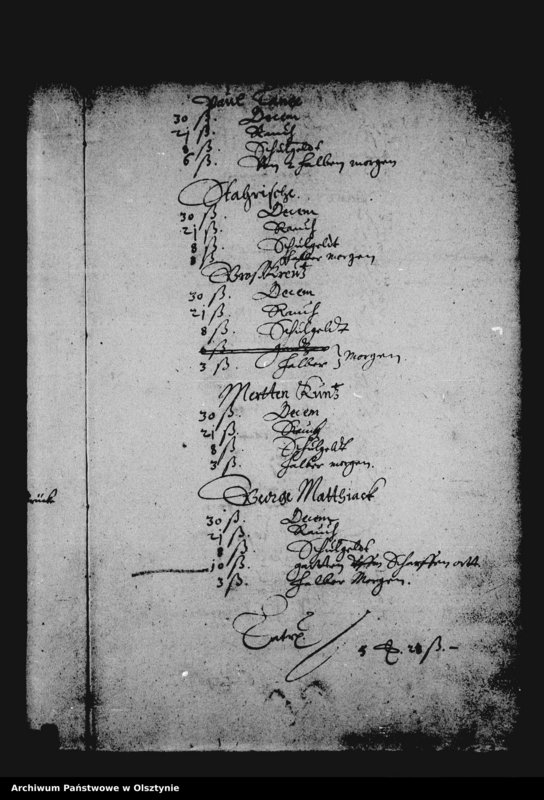 Paul Lange
30 ß. Decem
21 ß. Rauch
8 ß. Schulgeldt
6 ß. Von 2 halben morgen
Stahrische.
30 ß. Decem
21 ß. Rauch
8 ß. Schulgeldt
8 ß. halber morgen
30 ß. Decem
21 ß. Rauch
8 ß. Schulgeldt
3 ß. halber } Morgen
Mertten Kuntz
30 ß. Decem
21 ß. Rauch
8 ß. Schulgeldt
3 ß. halber morgen.
George Matthiack
30 ß. Decem
21 ß. Rauch
8 ß. Schulgeldt
10 ß. gartten Scharffen ortt
3 ß. halber Morgen.
5 28 ß. –
Archiwum Państwowe w Olsztynie